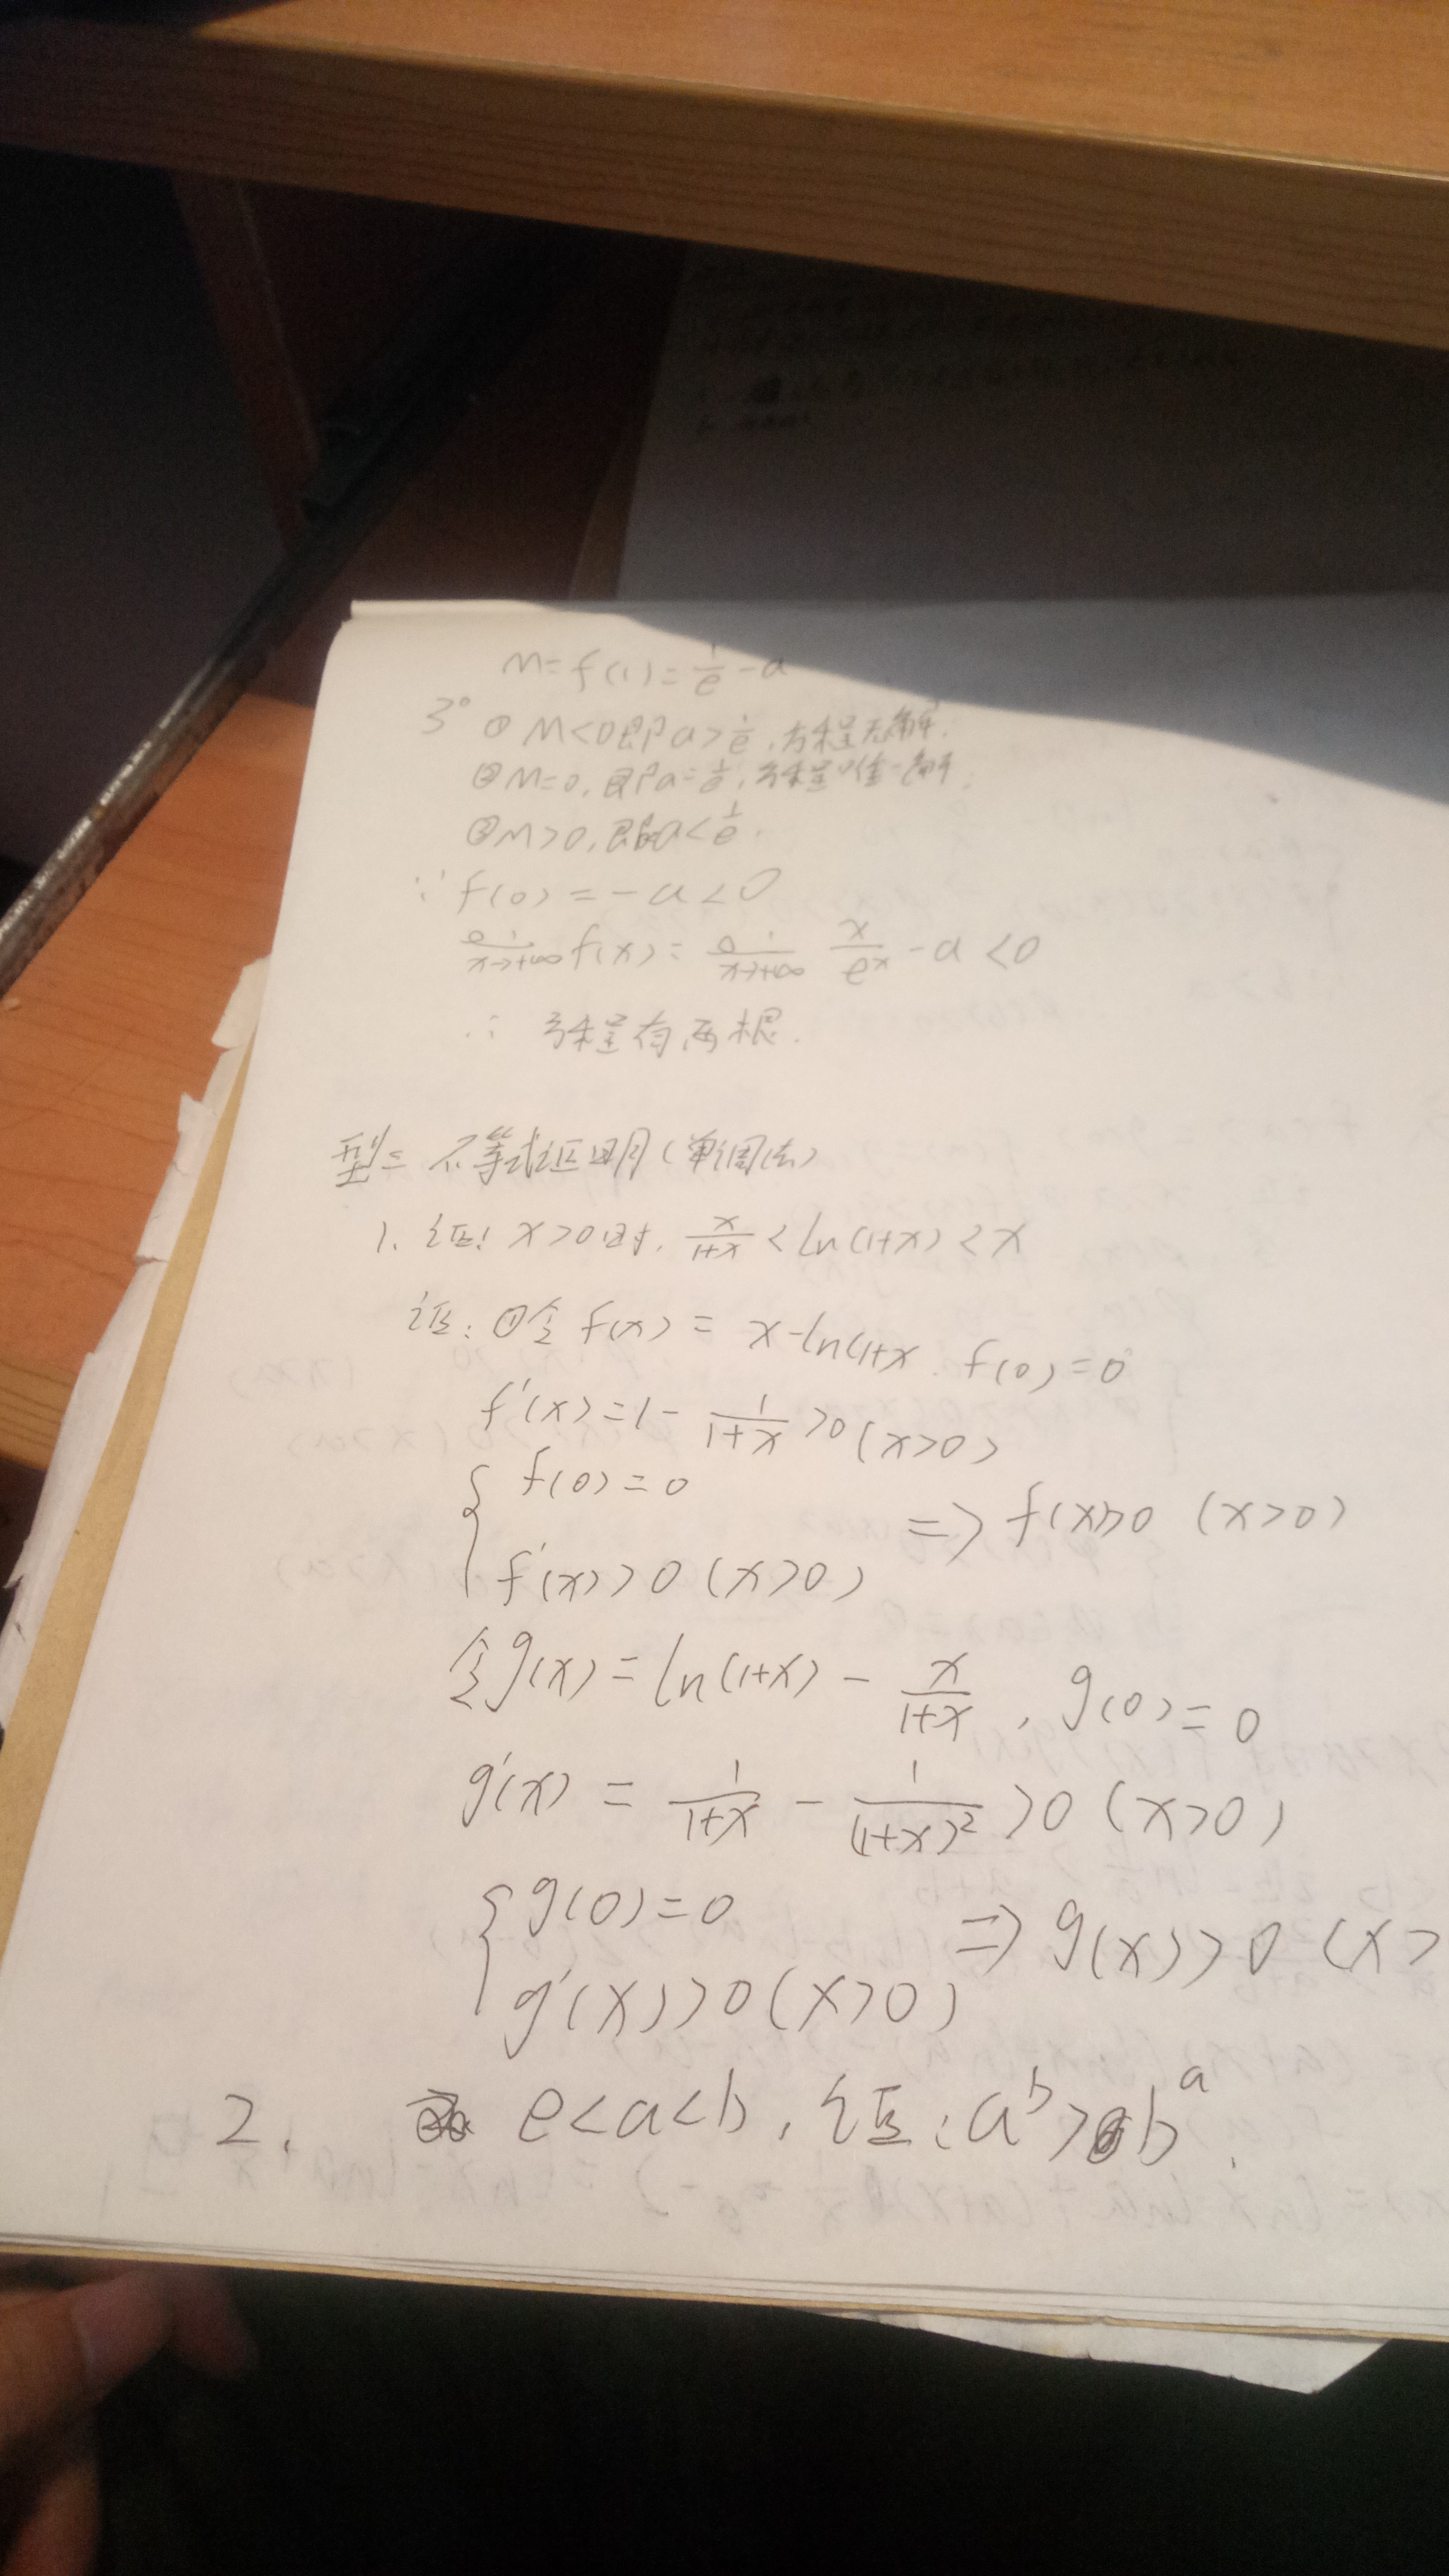 M=f(1)=1/e-a
3° ① M<0即a>1/e,方程无解.
②M=0,即a=1/e,方程唯一解.
③M>0,即a<1/e.
∵ f(0)=-a<0
lim x→+∞ f(x)= lim x→+∞ x/e^x -a <0
∴ 方程有两根.
型二 不等式证明(单调法)
1. 证: x>0时, x/(1+x) < ln(1+x) < x
证: ①令 f(x) = x-ln(1+x f(0)=0
f'(x)=1- 1/(1+x) >0(x>0)
{ f(0)=0
f'(x)>0(x>0) => f(x)>0 (x>0)
令g(x)=ln(1+x) - x/(1+x), g(0)=0
g'(x) = 1/(1+x) - 1/(1+x)² >0 (x>0)
{ g(0)=0
g'(x)>0(x>0) => g(x)>0 (x>
2. e<a<b, 证: a^b>b^a.